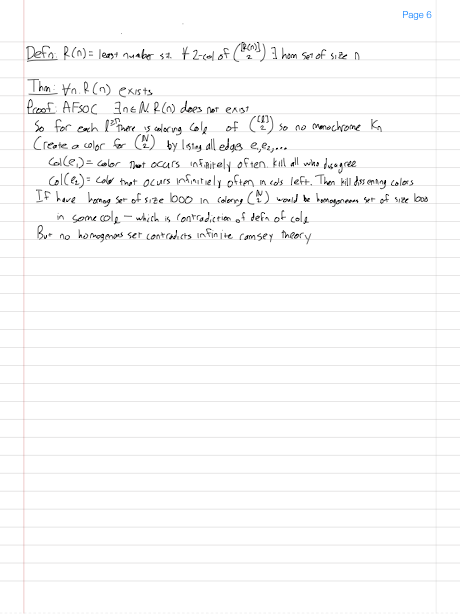 Page 6
Defn: R(n) = least number s.t. ∀ 2-col of ([R(n)] 2) ∃ hom set of size n
Thm: ∀n R(n) exists
Proof: AFSOC ∃n∈N R(n) does not exist
So for each l there is coloring col_l of ([l] 2) so no monochrome K_n
Create a color for (N 2) by listing all edges e_1 e_2,...
Col(e_1) = color that occurs infinitely often. Kill all who disagree
Col(e_2) = color that occurs infinitiely often in cols left. Then kill dissenting colors
If have homog set of size 1000 in coloring (N 2) would be homogeneous set of size 1000
in some col_l – which is contradiction of defn of col_l
But no homogenous set contradicts infinite ramsey theory